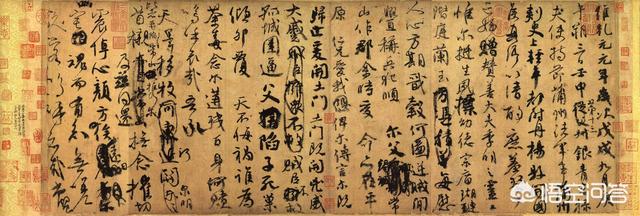 維乾元元年歲次戊戌九月庚
午朔三日壬申第十三叔銀青光祿
夫使持節蒲州諸軍事蒲州
刺史上輕車都尉丹陽縣開國
侯真卿以清酌庶羞祭于
亡姪贈贊善大夫季明之靈曰
惟爾挺生夙標幼德宗廟瑚璉
階庭蘭玉每慰
人心方期戩穀何圖逆賊閒
釁稱兵犯順爾父竭誠常
山作郡余時受命亦在平
原仁兄愛我俾爾傳言爾既
歸止爰開土門土門既開凶威
大蹙賊臣不救
孤城圍逼父陷子死巢
傾卵覆天不悔禍誰為
荼毒念爾遘殘百身何贖
嗚呼哀哉吾承
天澤移牧河關泉明
首櫬及茲同還撫念摧切
震悼心顏方俟
魂而有知無嗟
悟空问答